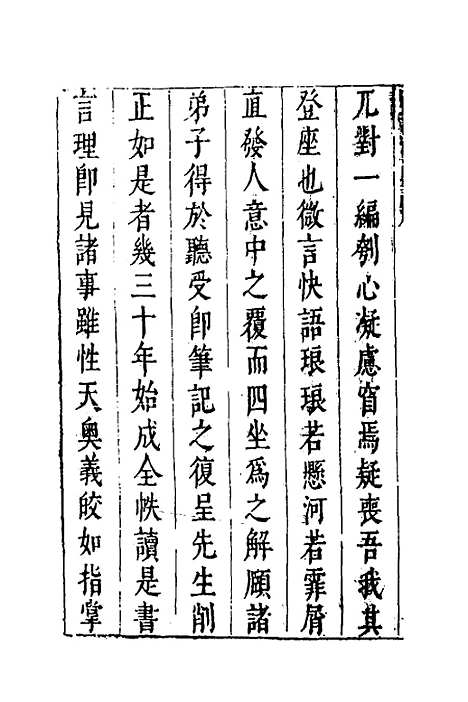 兀對一編刳心凝慮窅焉疑喪吾我其
登座也微言快語琅琅若懸河若霏屑
直發人意中之覆而四坐爲之解頤諸
弟子得於聽受即筆記之復呈先生削
正如是者幾三十年始成全帙讀是書
言理卽見諸事雖性天奥義皎如指掌